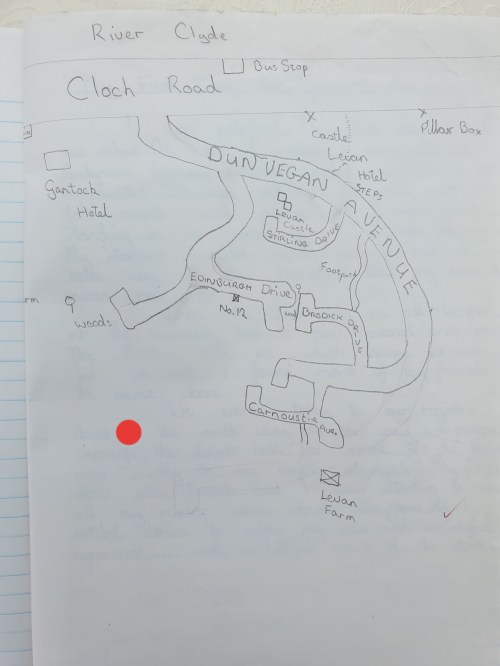 River Clyde
Bus Stop
Cloch Road
Castle
Levan
Hotel
STEPS
Pillar Box
Gantock
Hotel
DUNVEGAN AVENUE
Levan
Castle
STIRLING DRIVE
Footpath
EDINBURGH Drive
No. 12
BRODICK DRIVE
woods
Carnoustie Ave.
Levan
Farm